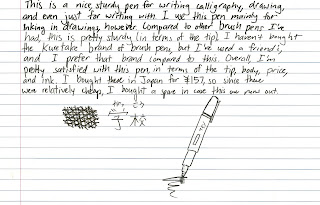 This is a nice, sturdy pen for writing calligraphy, drawing,
and even just for writing with. I use this pen mainly for
inking in drawings, however. Compared to other brush pens I've
had, this is pretty sturdy (in terms of the tip). I haven't bought
the Kuretake brand of brush pens, but I've used a friend's,
and I prefer that brand compared to this. Overall, I'm
pretty satisfied with this pen in terms of the tip, body, price,
and ink. I bought these in Japan for ¥157, so since these
were relatively cheap, I bought a spare in case this one runs out.